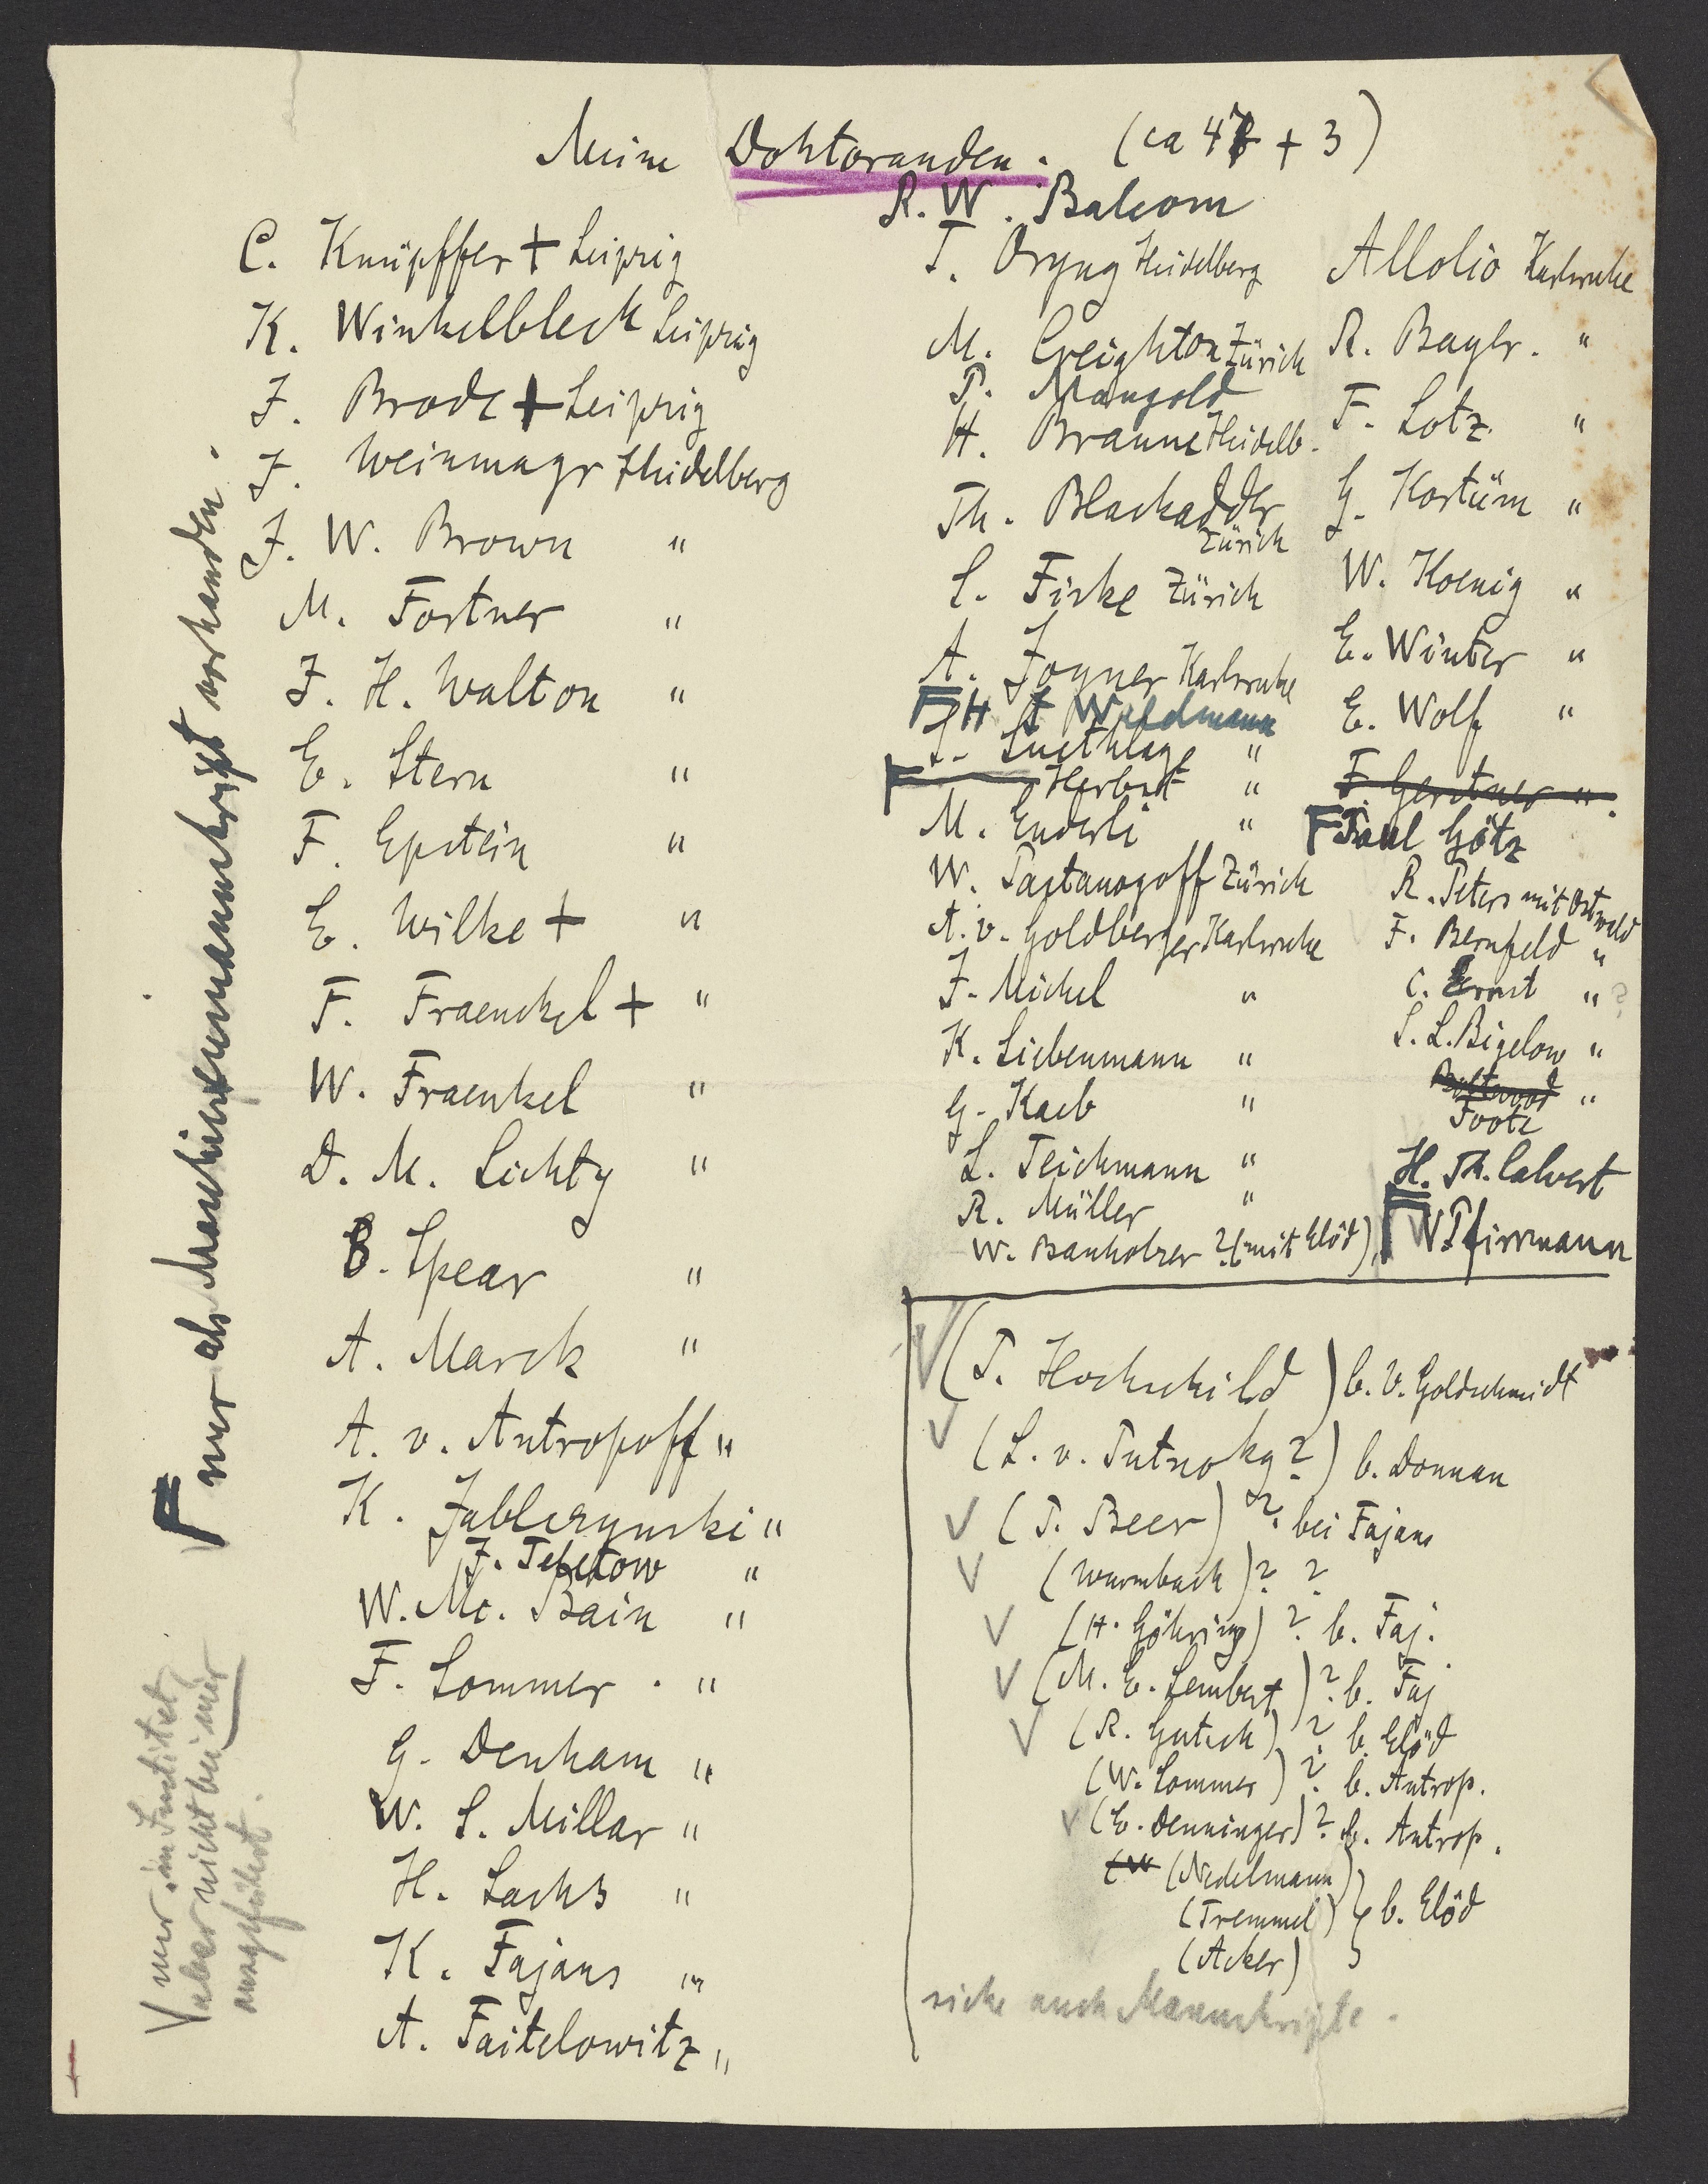 Meine Doktoranden. (ca 47 + 3)
C. Knüpffer + Leipzig
K. Winkelblech Leipzig
J. Brode + Leipzig
J. Weinmayr Heidelberg
J. W. Brown "
M. Fortner "
J. H. Walton "
E. Stern "
F. Epstein "
E. Wilke + "
F. Fraenckel + "
W. Fraenkel "
D. M. Lichty "
B. Spear "
A. Marck "
A. v. Antropoff "
K. Jablczynski "
J. Teletow "
W. Mc. Bain "
F. Sommer . "
G. Denham "
W. S. Millar "
H. Sachs "
K. Fajans "
A. Faitelowitz "
R. W. Balcom
T. Oryng Heidelberg
M. Creighton Zürich
P. Mangold
H. Braune Heidelb.
Th. Blackadder
Zürich
L. Firke Zürich
A. Jogner Karlsruhe
F H J Waldmann
J. Suethlage "
F Herbst "
M. Enderli "
W. Pastanogoff Zürich
A. v. Goldberger Karlsruhe
J. Michel "
K. Siebenmann "
G. Kaeb "
L. Teichmann "
R. Müller "
W. Banholzer ? (mit Elöd)
Allolio Karlsruhe
R. Bayer. "
F. Lotz "
G. Kortüm "
W. Koenig "
E. Winter "
E. Wolf "
F Gerstner "
F Paul Götz
R. Peters mit Ostwald
F. Bernfeld "
C. Ernst " ?
S. L. Bigelow "
Boltwood "
Foote
H. Th. Calvert
F W Pfirrmann
V (P. Hochschild) b. V. Goldschmidt
V (L. v. Putnoky ?) b. Donnan
V (P. Beer) ? bei Fajans
V (Wurmbach) ? ?
V (H. Göhring) ? b. Faj.
V (M. E. Lembert) ? b. Faj
V (R. Gutsch) ? b. Elöd
(W. Sommer) ? b. Antrop.
V (E. Denninger) ? b. Antrop.
(W (Nedelmann)
(Tremmel) } b. Elöd
(Acker)
siehe auch Manuskripte.
F nur als Maschinenmanuskript vorhanden.
V nur im Institut,
aber nicht bei mir
ausgeführt.